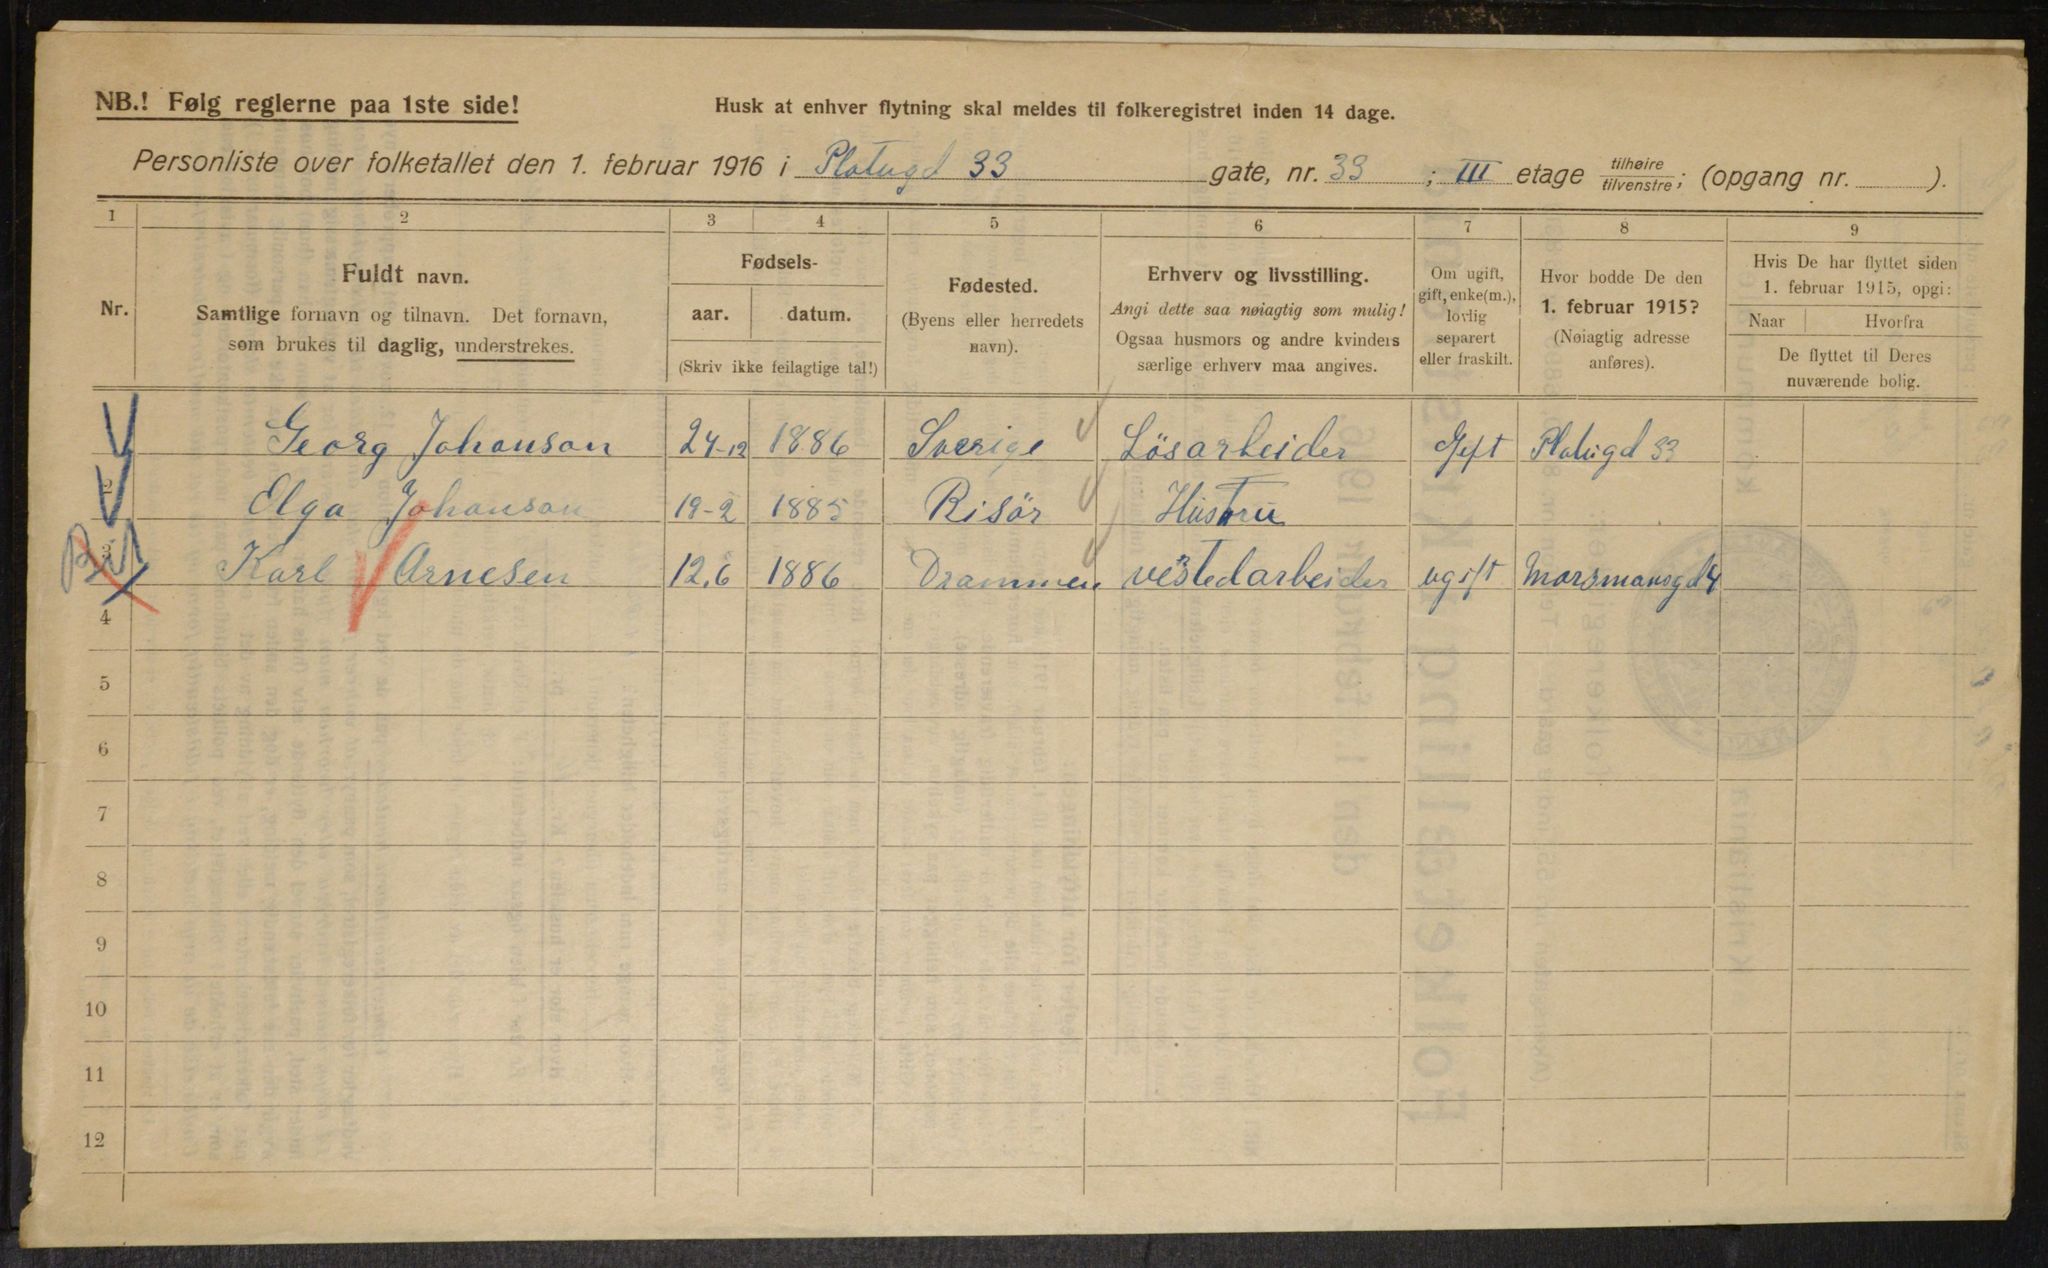 NB.! Følg reglerne paa 1ste side!
Husk at enhver flytning skal meldes til folkeregistret inden 14 dage.
Personliste over folketallet den 1. februar 1916 i Platugd 33 gate, nr. 33 ; III etage tilhøire/tilvenstre; (opgang nr. ).
1 2 3 4 5 6 7 8 9
Nr.
Fuldt navn.
Samtlige fornavn og tilnavn. Det fornavn,
som brukes til daglig, understrekes.
Fødsels-
aar. datum.
(Skriv ikke feilagtige tal!)
Fødested.
(Byens eller herredets
navn).
Erhverv og livsstilling.
Angi dette saa nøiagtig som mulig!
Ogsaa husmors og andre kvinders
særlige erhverv maa angives.
Om ugift,
gift, enke(m.),
lovlig
separert
eller fraskilt.
Hvor bodde De den
1. februar 1915?
(Nøiagtig adresse
anføres).
Hvis De har flyttet siden
1. februar 1915, opgi:
Naar Hvorfra
De flyttet til Deres
nuværende bolig.
Georg Johanson 24-12 1886 Sverige Løsarbeider Gift Platugd 33
2 Elga Johanson 19-2 1885 Risör Hustru
3 Karl Arnesen 12.6 1886 Drammen vestedarbeider ugift
4
5
6
7
8
9
10
11
12